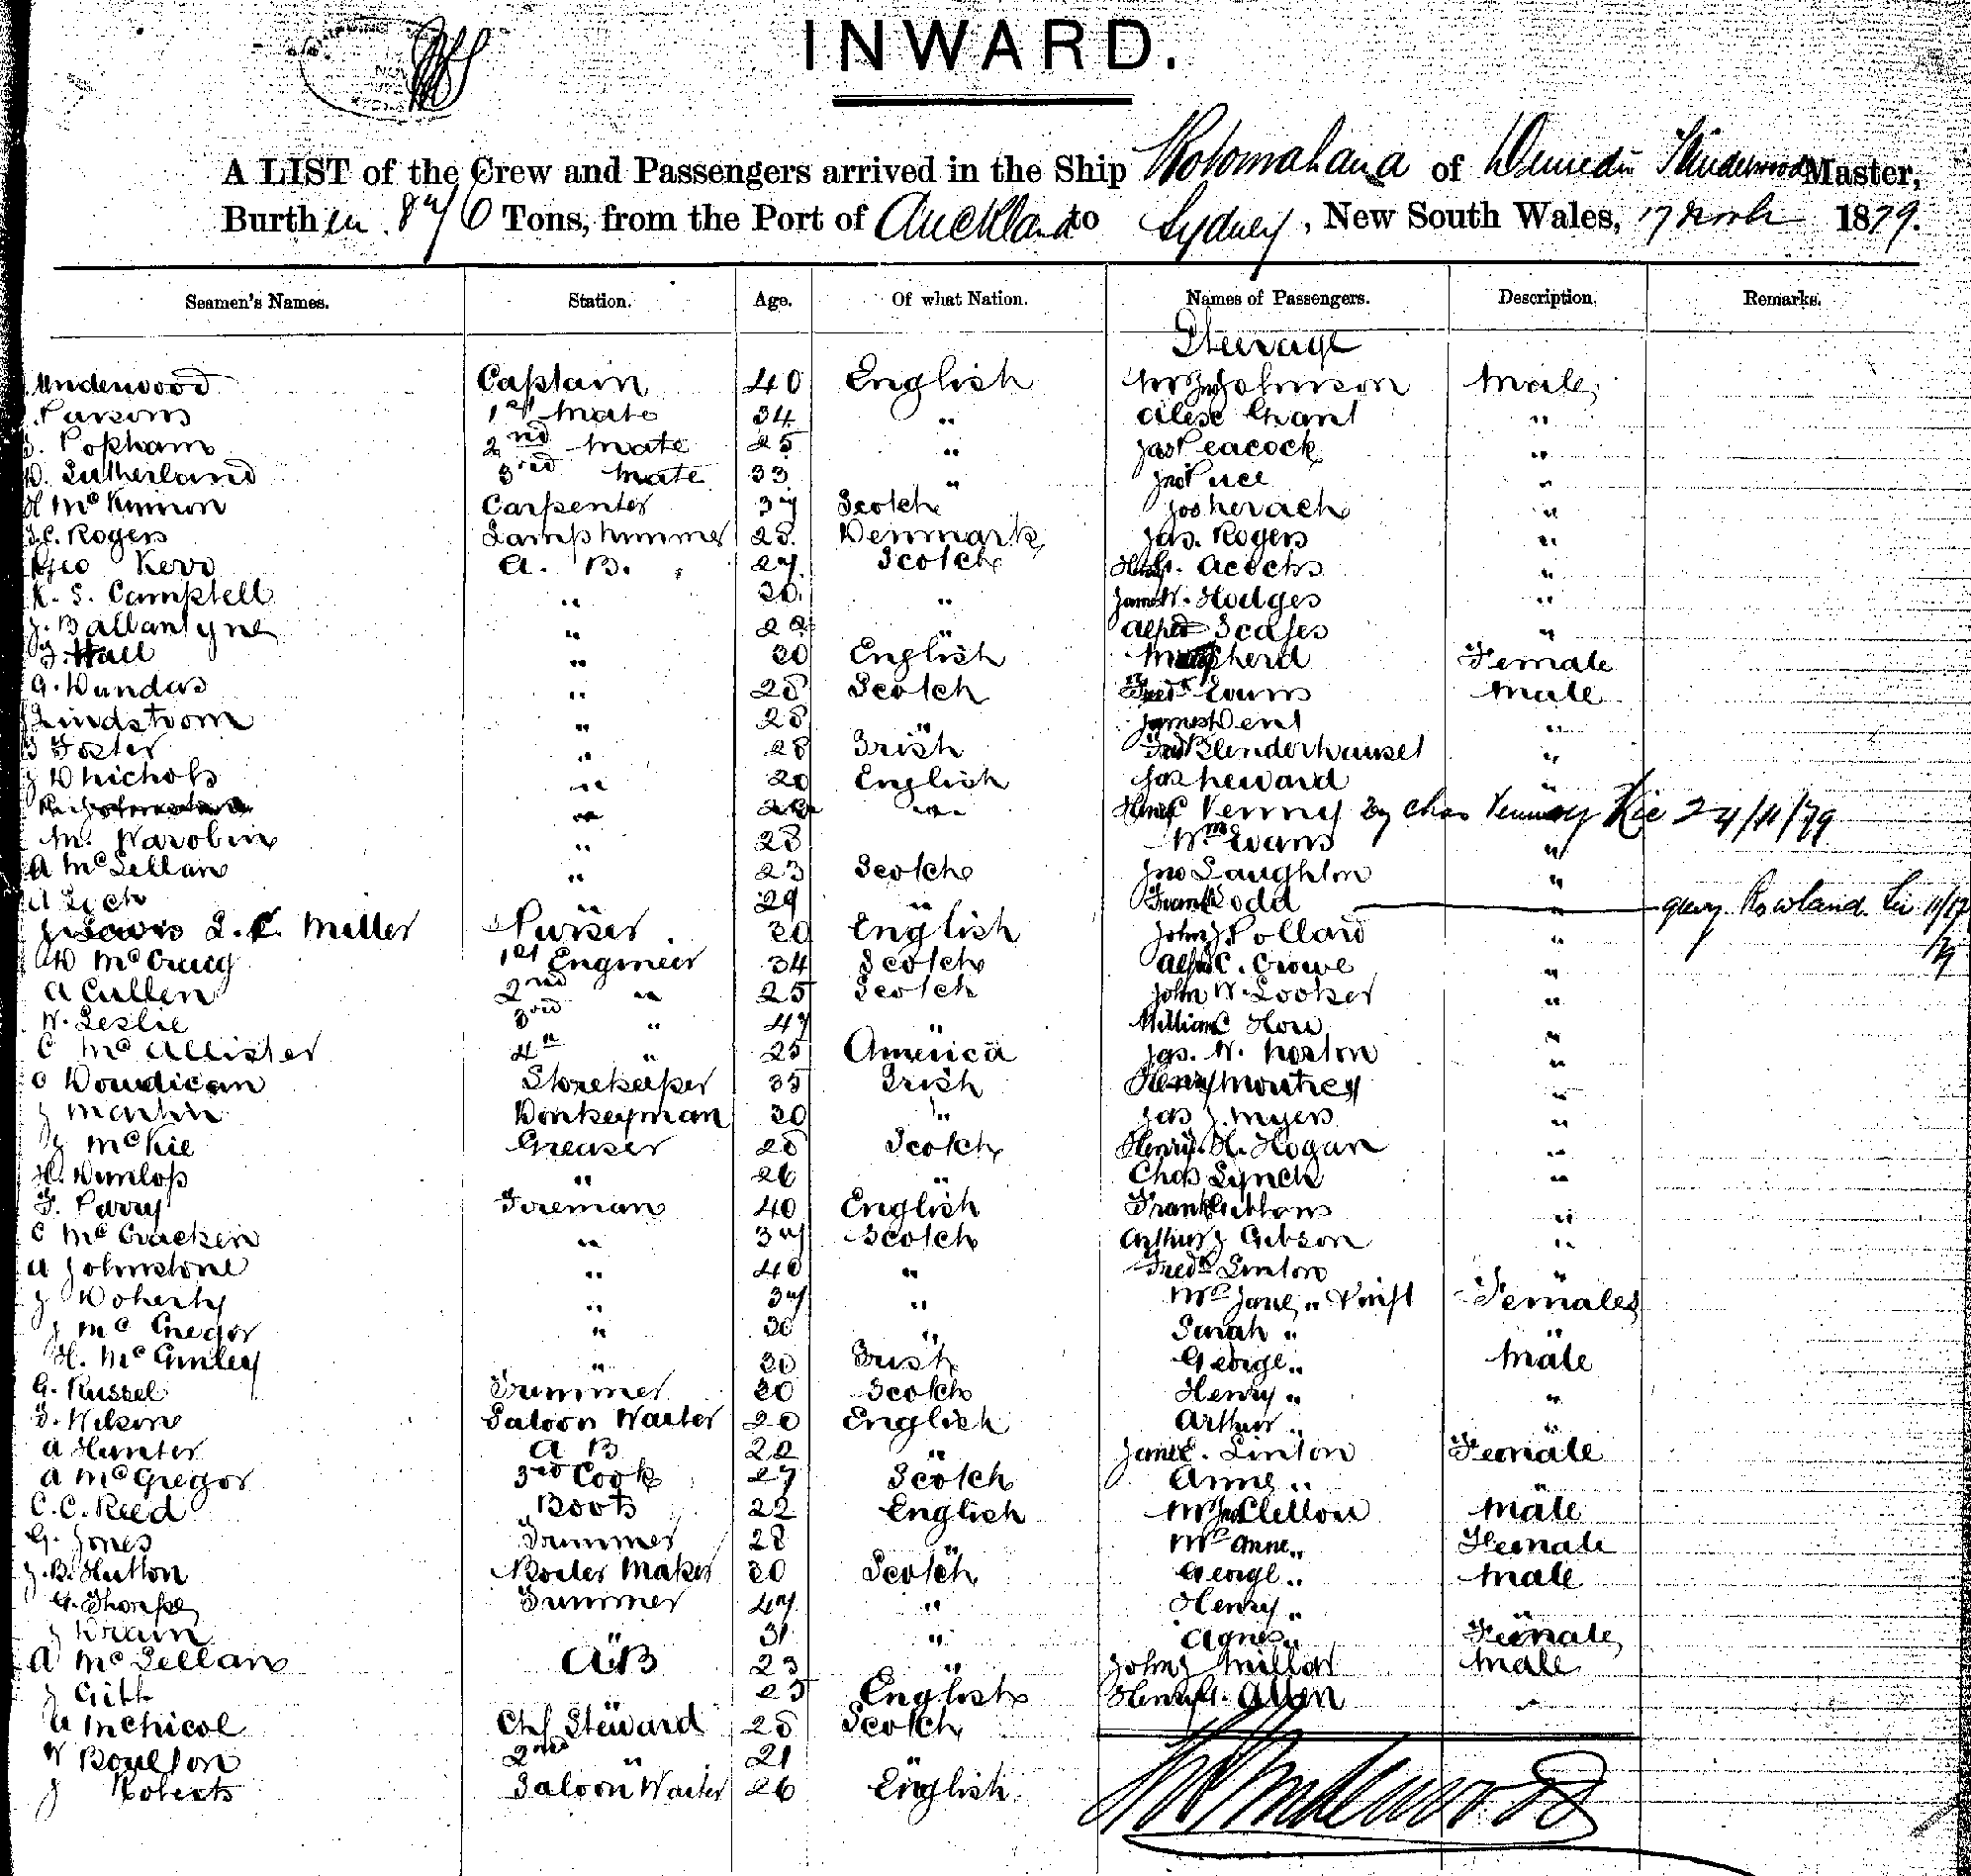 INWARD.
A LIST of the Crew and Passengers arrived in the Ship Rotomahana of Dunedin Underwood Master,
Burthen 876 Tons, from the Port of Auckland to Sydney, New South Wales, 17 Novbr 1879.
Seamen's Names. Station. Age. Of what Nation. Names of Passengers. Description. Remarks.
Steerage
Underwood Captain 40 English Johnson Male
Parsons 1st Mate 34 " Grant "
Popham 2nd Mate 25 " Jas Peacock "
D. Sutherland 3rd Mate 33 " Jno "
H McKinnon Carpenter 37 Scotch Jos "
J.C. Rogers Lamptrimmer 28 Denmark Jas. Rogers "
Geo Kerr A. B. 27 Scotch "
K. S. Campbell " 30 " James W. Hodges "
J. Ballantyne " 22 " Alfred Scafes "
J. Hall " 20 English Female
G. Dundas " 28 Scotch Fredk Male
Lindstrom " 28 " James Dent "
Foster " 28 Irish "
J D Nichols " 20 English Jas Heward "
" " Henry C Venny by Chas Venney 24/11/79
M. " 28 Wm Evans "
A McLellan " 23 Scotch Jno Laughton "
" 29 " Frank Rodd " query Rowland
L. C. Miller Purser 30 English John J. Pollard "
D McCraig 1st Engineer 34 Scotch Alfred C. Crowe "
A Cullen 2nd " 25 Scotch John W. Looker "
W. Leslie 3rd " 47 " William C How "
C McAllister 4th " 25 America Jas. W. Norton "
Storekeeper 35 Irish Henry "
J Martin Donkeyman 30 " Jas J. Myers "
J McKie Greaser 28 Scotch Henry H. Hogan "
H. Dunlop " 26 " Chas Lynch "
J. Parry Foreman 40 English Frank Gibbons "
C McCracken " 37 Scotch Arthur J Gibson "
A Johnstone " 40 " Fredk Linton "
J Doherty " 37 " Mrs Jane " Females
J McGregor " 30 " Sarah " "
H. McGinley " 30 Irish George " Male
G. Russel Trimmer 20 Scotch Henry " "
J. Wilson Saloon Waiter 20 English Arthur " "
A Hunter A B 22 " Jane E. Linton Female
A McGregor 3rd Cook 27 Scotch Anne " "
C. C. Reed Boots 22 English Mr Jno Clellon Male
G. Jones Trimmer 28 Mrs Anne " Female
J. B. Hutton Boiler Maker 30 Scotch George " Male
G. Thorpe Trimmer 47 " Henry " "
J Krain " 31 " Agnes " Female
A McLellan A B 23 " John J Millar Male
J Gibb " 25 English Henry G. Allen "
A McNicol Chf Steward 28 Scotch
W Boulton 2nd " 21 "
J Roberts Saloon Waiter 26 English
Underwood